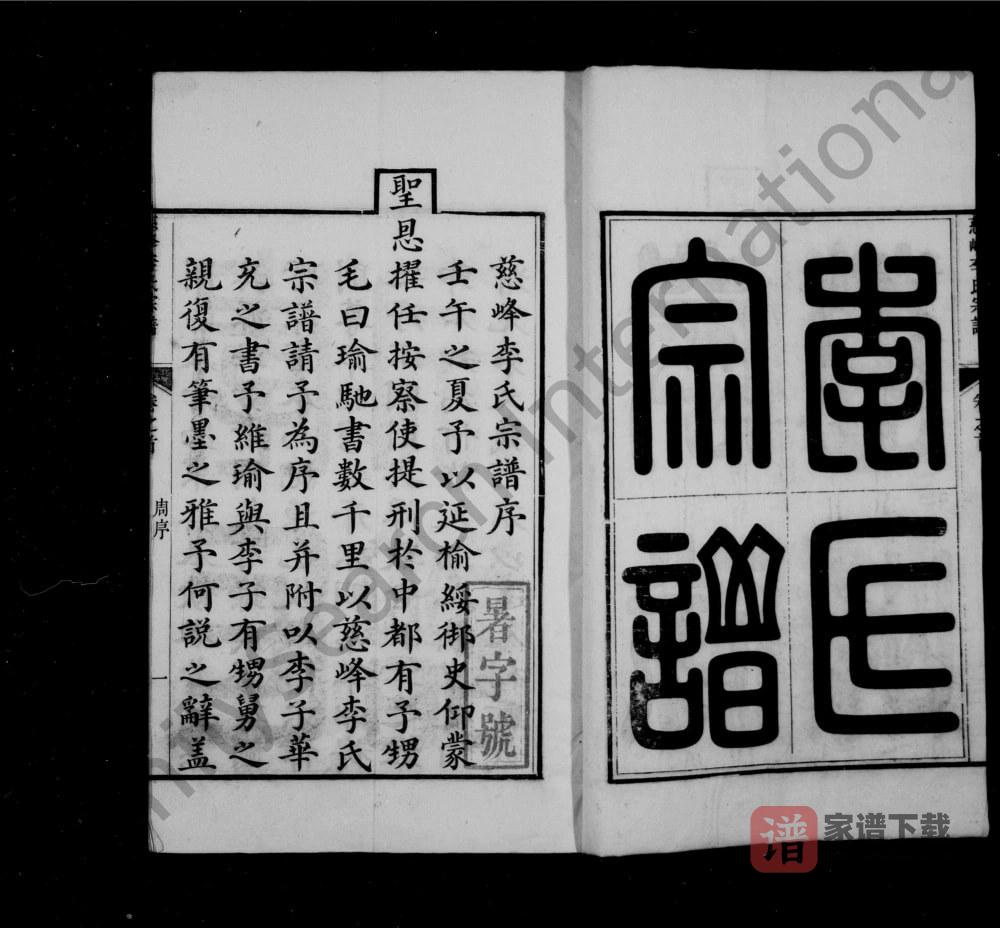 李氏
宗譜
慈峰李氏宗譜序
壬午之夏予以延榆綏御史仰蒙
聖恩擢任按察使提刑於中都有予甥
毛曰瑜馳書數千里以慈峰李氏
宗譜請予為序且并附以李子華
充之書予維瑜與李子有甥舅之
親復有筆墨之雅予何說之辭盖
暑字號
周序
一
FamilySearch International
谱
家谱下载